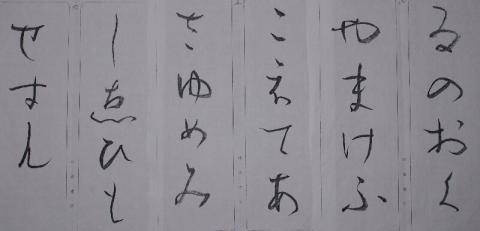 るのおく
やまけふ
こえてあ
さゆめみ
しゑひも
せすん